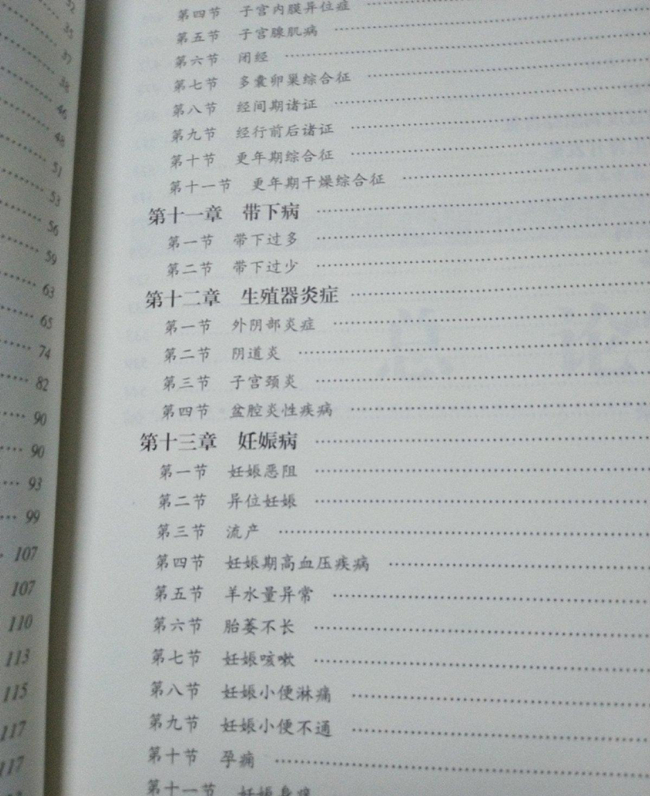 32
35
37
38
46
48
51
53
56
59
63
65
74
82
90
90
93
99
107
107
110
113
115
117
117
第四节 子宫内膜异位症
第五节 子宫腺肌病
第六节 闭经
第七节 多囊卵巢综合征
第八节 经间期诸证
第九节 经行前后诸证
第十节 更年期综合征
第十一节 更年期干燥综合征
第十一章 带下病
第一节 带下过多
第二节 带下过少
第十二章 生殖器炎症
第一节 外阴部炎症
第二节 阴道炎
第三节 子宫颈炎
第四节 盆腔炎性疾病
第十三章 妊娠病
第一节 妊娠恶阻
第二节 异位妊娠
第三节 流产
第四节 妊娠期高血压疾病
第五节 羊水量异常
第六节 胎萎不长
第七节 妊娠咳嗽
第八节 妊娠小便淋痛
第九节 妊娠小便不通
第十节 孕痈
第十一节 妊娠身痒